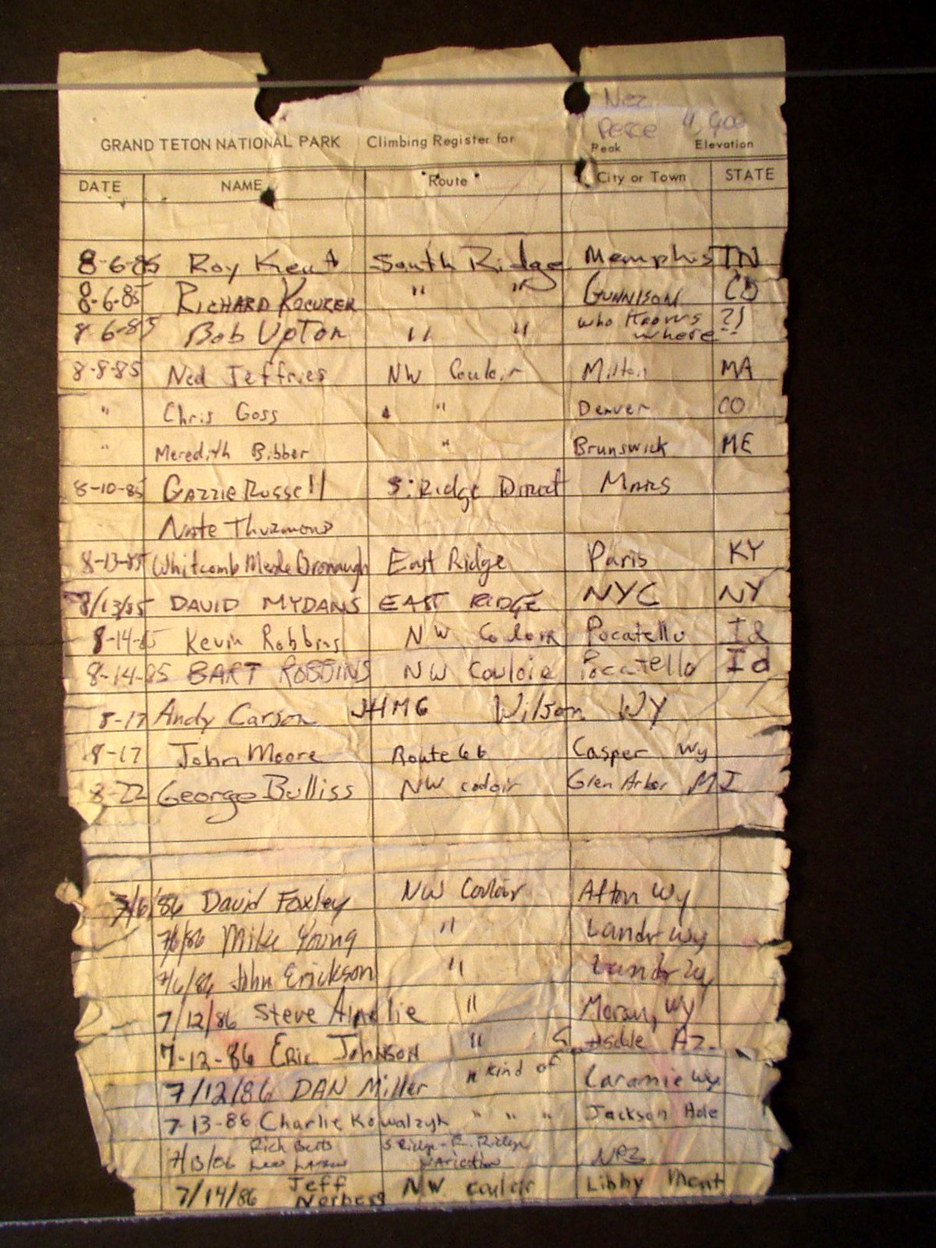 Nez
Perce 11,900
GRAND TETON NATIONAL PARK Climbing Register for Peak Elevation
DATE NAME Route City or Town STATE
8-6-85 Roy Kent South Ridge Memphis TN
8-6-85 RICHARD KOCUREK " " GUNNISON CO
8-6-85 Bob Upton " " who knows where ?!
8-8-85 Ned Jeffries NW Couloir Milton MA
" Chris Goss " " Denver CO
" Meredith Bibber " Brunswick ME
8-10-85 Gazzie Russell S. Ridge Direct Mars
Nate Thurmond
8-13-85 Whitcomb Meade Bronaugh East Ridge Paris KY
8/13/85 DAVID MYDANS EAST RIDGE NYC NY
8-14-85 Kevin Robbins NW Couloir Pocatello Id
8-14-85 BART ROBBINS NW Couloir Pocatello Id
8-17 Andy Carson JHMG Wilson WY
8-17 John Moore Route 66 Casper Wy
8-22 George Bulliss NW couloir Glen Arbor MI
7/6/86 David Foxley NW Couloir Afton Wy
7/6/86 Mike Young " Landr Wy
7/6/86 John Erickson " Landr Wy
7/12/86 Steve " Moran, Wy
7-12-86 Eric Johnson " Az.
7/12/86 DAN Miller " kind of Laramie Wy
7-13-86 Charlie Kowalzyk " " " Jackson Hole
7/13/86 Rich S Ridge - Ridge
Variation
7/14/86 Jeff NW couloir Libby Mont